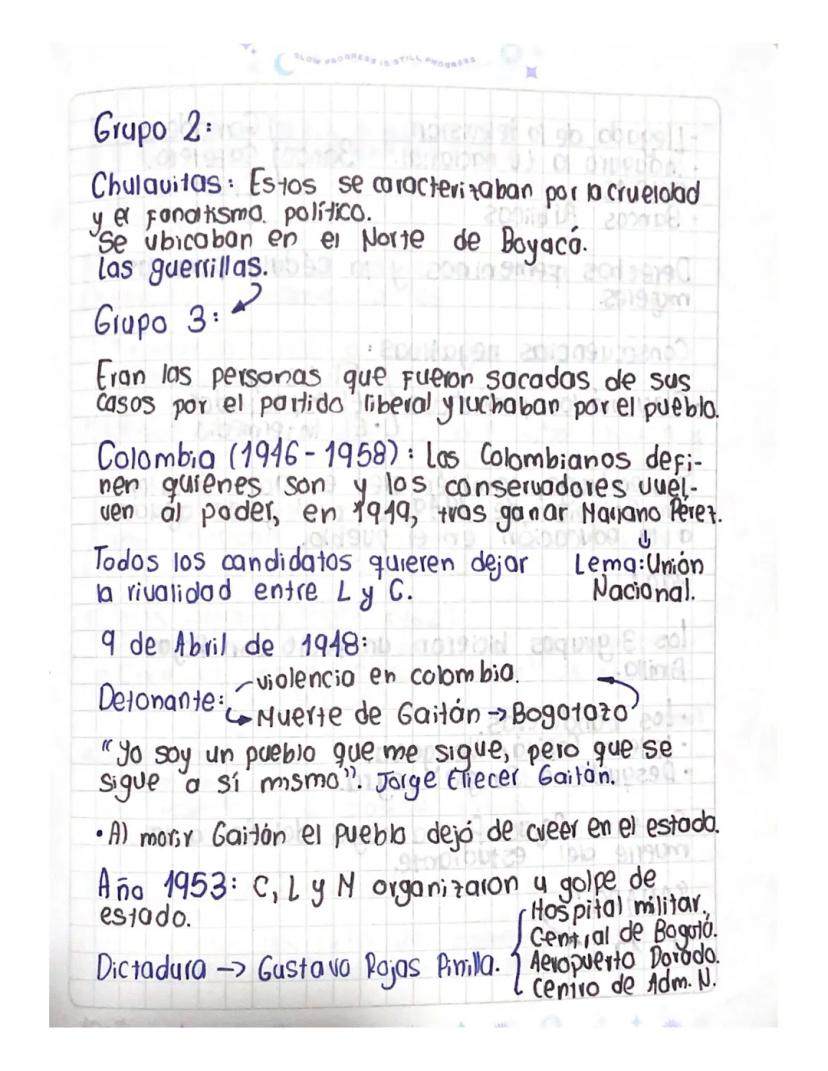 SLOW PROGRESS IS STILL PROGRESS
Grupo 2:
Chulavitas: Estos se caracterizaban por la crueldad
y el fanatismo político.
Se ubicaban en el Norte de Boyacá.
Las guerrillas.
Grupo 3:
Eran las personas que fueron sacadas de sus
casas por el partido liberal y luchaban por el pueblo.
Colombia (1946-1958): Los Colombianos defi-
nen quienes son y los conservadores vuel-
ven al poder, en 1949, tras ganar Mariano Pérez.
Todos los candidatos quieren dejar
la rivalidad entre L y C.
Lema: Unión
Nacional.
9 de Abril de 1948:
Detonante:
violencia en colombia.
Muerte de Gaitán → Bogotazo
"Yo soy un pueblo que me sigue, pero que se
sigue a sí mismo". Jorge Eliecer Gaitán.
• Al morir Gaitán el pueblo dejó de creer en el estado.
Año 1953: C, L y M organizaron u golpe de
estado.
Dictadura → Gustavo Rojas Pinilla.
Hospital militar.
Central de Bogotá.
Aeropuerto Dorado.
Centro de Adm. N.